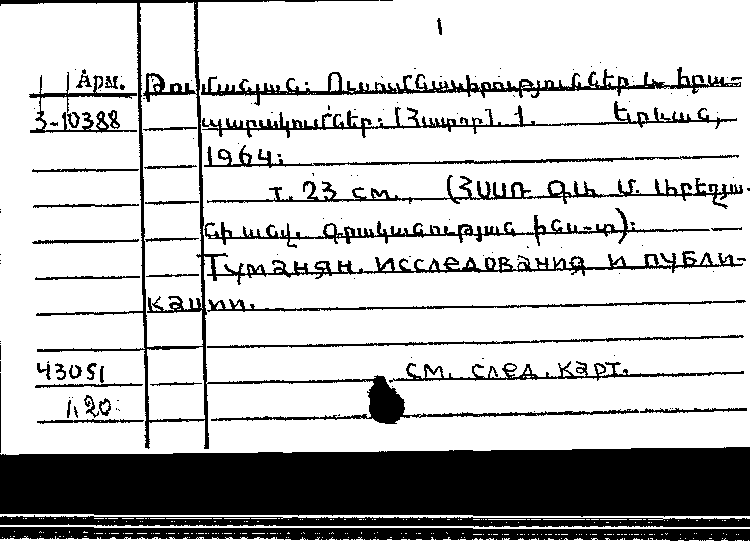 1
Арм. Թումանյան: Ուսումնասիրություններ և հրա-
3-10388 պարակումներ: [Հատոր]. 1. Երևան,
1964:
т. 23 см., (ՀՍՍՌ ԳԱ Մ. Աբեղյա-
նի անվ. գրականության ինս-տ):
Туманян. исследования и публи-
кации.
43051 см. след. карт.
1,20